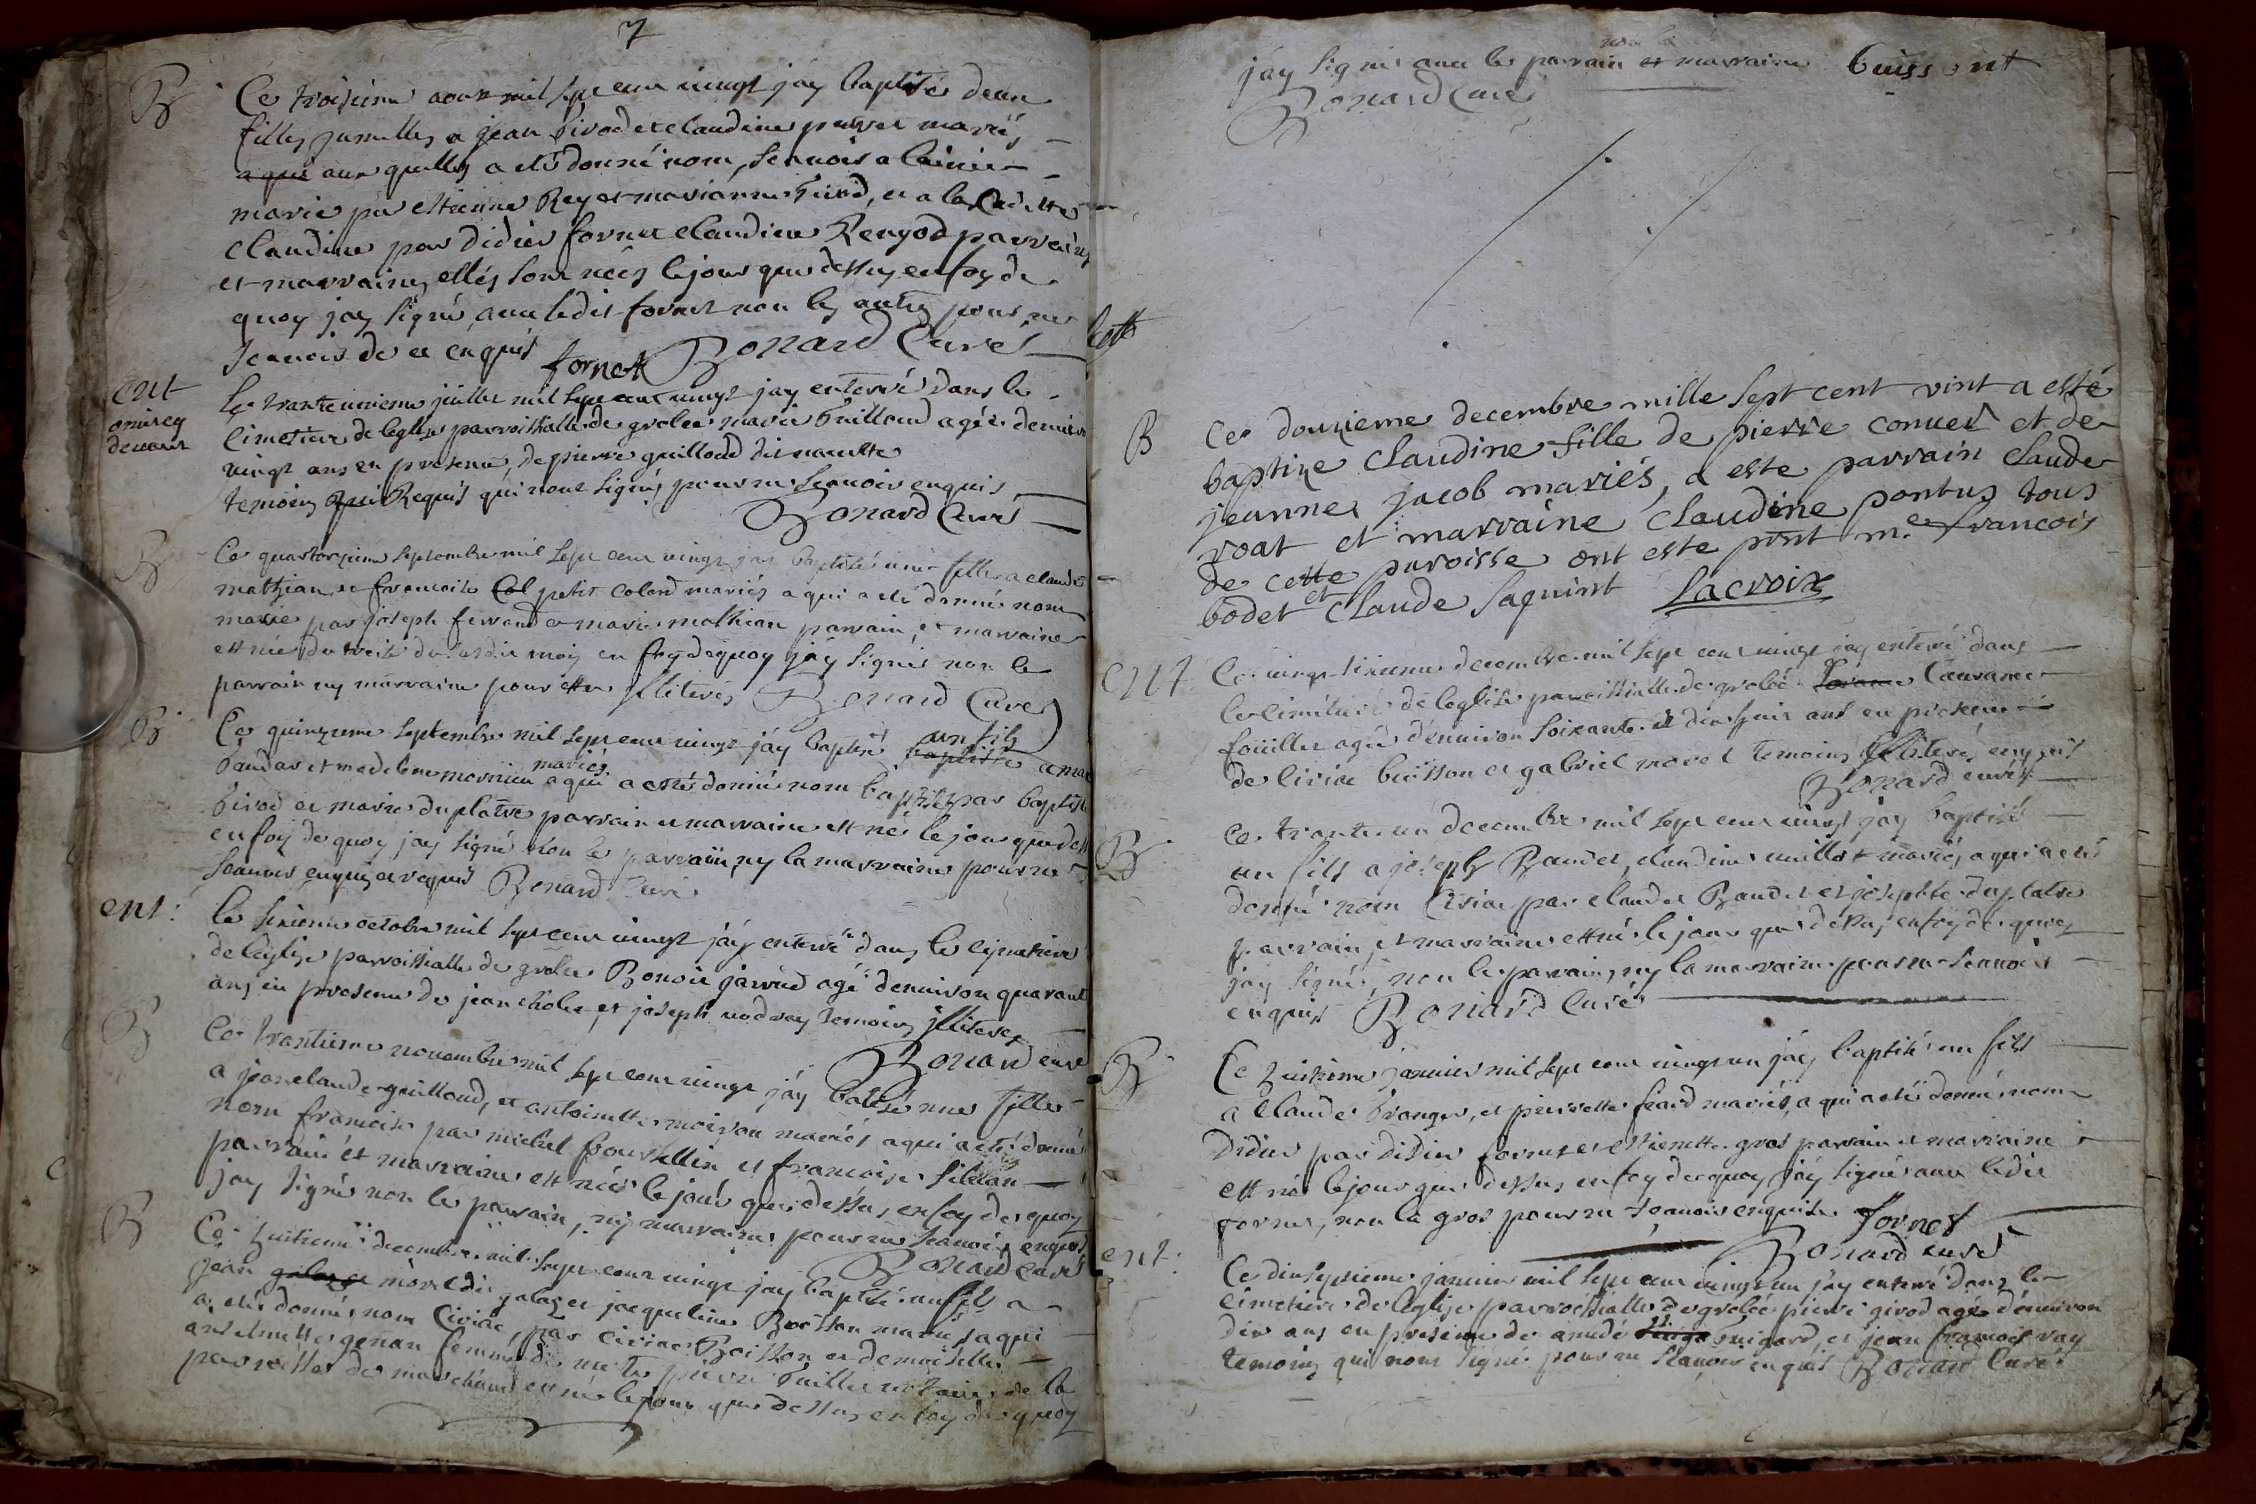 7
B
Ce troisieme aoust mil sept cent vingt jay baptisé deux
filles jumelles a jean sivod et claudine pervet mariés
a qui aux quelles a eté donné nom, scavoir a lainée
marie par estienne Rey et marianne sivod, et a la cadette
claudine par didier fornet claudine Reygod parrains
et marraines, elles sont nées le jour que dessus en foy de
quoy jay signé, avec ledit fornet non les autres pour ne
scavoir de ce enquis fornet Bonard Curé
ent
omis cy
devant
Le trante unieme juillet mil sept cent vingt jay enterré dans le
cimetiere de leglise parroissialle de grolee marie Guilloud agée denviron
vingt ans en presence, de pierre guilloud dit
temoins qui Requis qui n'ont signé, pour ne scavoir enquis
Bonard Curé
B
Ce quatorzieme septembre mil sept cent vingt jay baptisé une fille a claude
mathian et francoise Col petit colard mariés a qui a eté donné nom
marie par joseph ferrand et marie mathian parrain, et marraine
est née du treize du susdit mois en foy dequoy jay signé non le
parrain ny marraine pour etre illiterés Bonard Curé
B
Ce quinzieme septembre mil sept cent vingt jay baptisé un fils baptiste a
baudar et madelene mornieu mariés a qui a esté donné nom baptiste par baptiste
sivod et marie duplatre parrain et marraine est né le jour que dess
en foy de quoy jay signé non le parrain, ny la marraine pour ne
scavoir enquis et requis Bonard Curé
ent:
Le sixieme octobre mil sept cent vingt jay enterré dans le cymetiere
de léglise parroissialle de grolee Benoit jarrud agé denviron quarante
ans en presence de jean et joseph temoins illiterés
Bonard curé
B
Ce trantieme novembre mil sept cent vingt jay batisé une fille
a jean claude guilloud, et antoinette moiron mariés a qui a eté donné
nom francoise par michel foursellin et francoise
parrain et marraine est née le jour que dessus, en foy de quoy
jay signé non le parrain, ny marraine pour ne scavoir enquis
Bonard Curé
B
Ce huitieme decembre mil sept cent vingt jay baptisé un fils a
jean galaz et morel dit galaz et jacqueline Buisson mariés a qui
a eté donné nom Civiac, par civiac Boisson et demoiselle
antelmette genan femme de me pierre Guillet notaire de la
parroisse de marchand est né le jour que dessus en foy de quoy
jay signé avec le parrain non la et marraine buissont
Bonard Curé
B
Ce douzieme decembre mille sept cent vint a esté
baptize claudine fille de pierre convert et de
jeanne jacob mariés, a este parrain claude
roat et marraine claudine pontus tous
de cette paroisse ont este pnt me francois
bodet et claude saquint Lacroix
ent
Ce vingt sixieme decembre mil sept cent vingt jay enterré dans
le cimétiere de leglise parroissialle de grolee
fouillet agé denviron soixante et dix huit ans en presence
de civiac buisson et gabriel morel temoins illiterés enquis
Bonard curé
B
Ce trante un decembre mil sept cent vingt jay baptisé
un fils a joseph Baudet, claudine mariés, a qui a eté
donné nom Civiac par claude Baudet et josephte duplatre
parrain, et marraine est né le jour que dessus en foy de quoy
jay signé, non le parrain, ny la marraine pour ne scavoir
enquis Bonard Curé
B
Ce huitieme janvier mil sept cent vingt un jay baptisé un fils
a Claude branger, et pierrette feard mariés, a qui a eté donné nom
Didier par didier fornet et estienette gros parrain et marraine
est né le jour que dessus en foy de quoy jay signé avec ledit
fornet, non la gros pour ne scavoir enquise fornet
Bonard curé
ent:
Ce dixseptieme janvier mil sept cent vingt un jay enterré dans le
cimetiere de leglise parroissialle de grolée pierre givod agé denviron
dix ans en presence de amedé Guigard, et jean francois ray
temoins qui n'ont signé pour ne scavoir enquis Bonard Curé